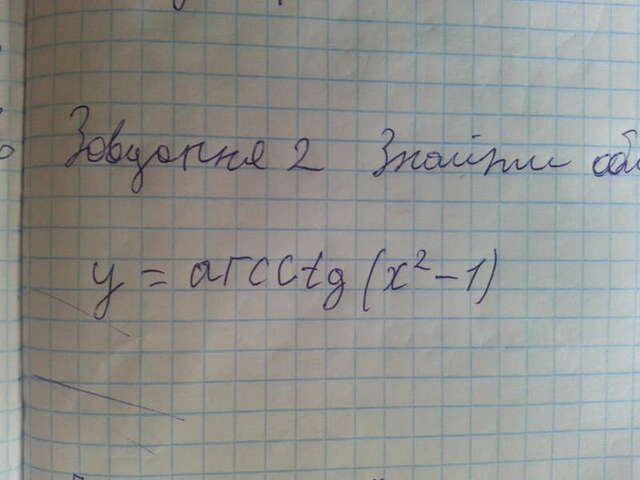 Завдання 2 Знайти обл
y = arcctg (x² - 1)